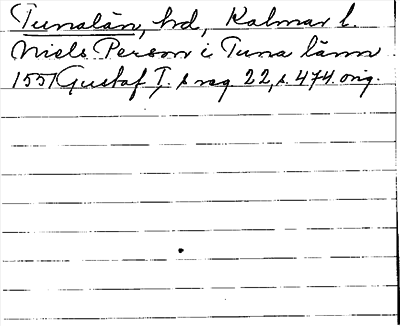 Tunalän, hd, Kalmar l.
Niels Person i Tuna länn
1551 Gustaf I:s reg. 22, s. 474. orig.